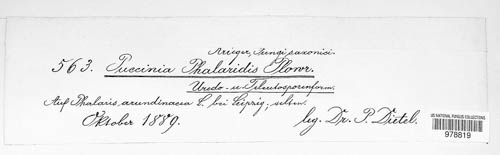 Krieger, Fungi saxonici.
563. Puccinia Phalaridis Plowr.
Uredo- u. Teleutosporenform.
Auf Phalaris arundinacea L. bei Leipzig; selten.
Oktober 1889. leg. Dr. P. Dietel.
US NATIONAL FUNGUS COLLECTIONS
978819